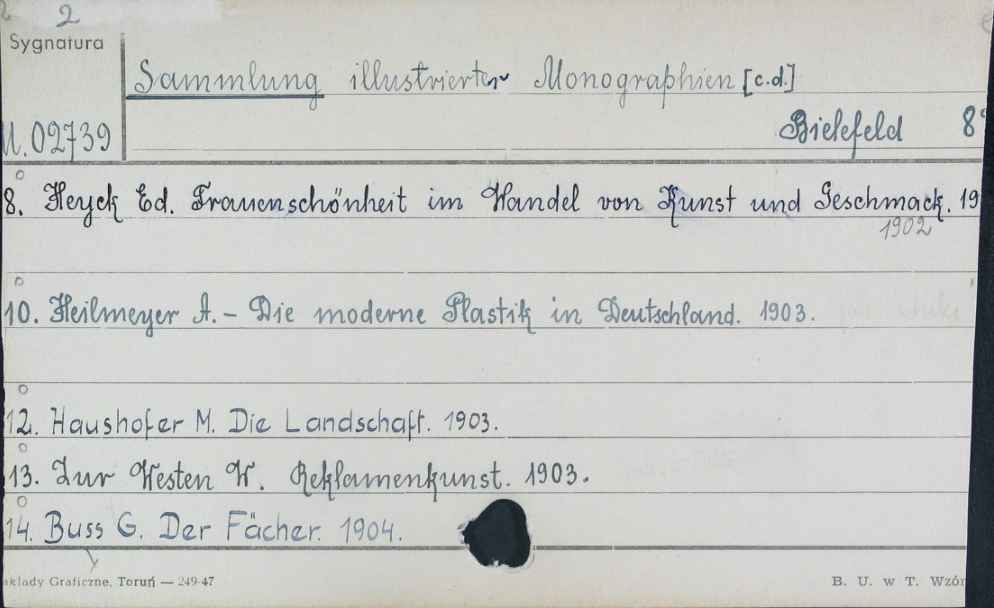 2
Sygnatura
Sammlung illustrierter Monographien [c.d.]
02739
Bielefeld 8°
8. Heyck Ed. Frauenschönheit im Wandel von Kunst und Geschmack. 19
1902
10. Heilmeyer A. - Die moderne Plastik in Deutschland. 1903.
12. Haushofer M. Die Landschaft. 1903.
13. Zur Westen W. Reklamenkunst. 1903.
14. Buss G. Der Fächer. 1904.
akłady Graficzne, Toruń — 249-47
B. U. w T. Wzór